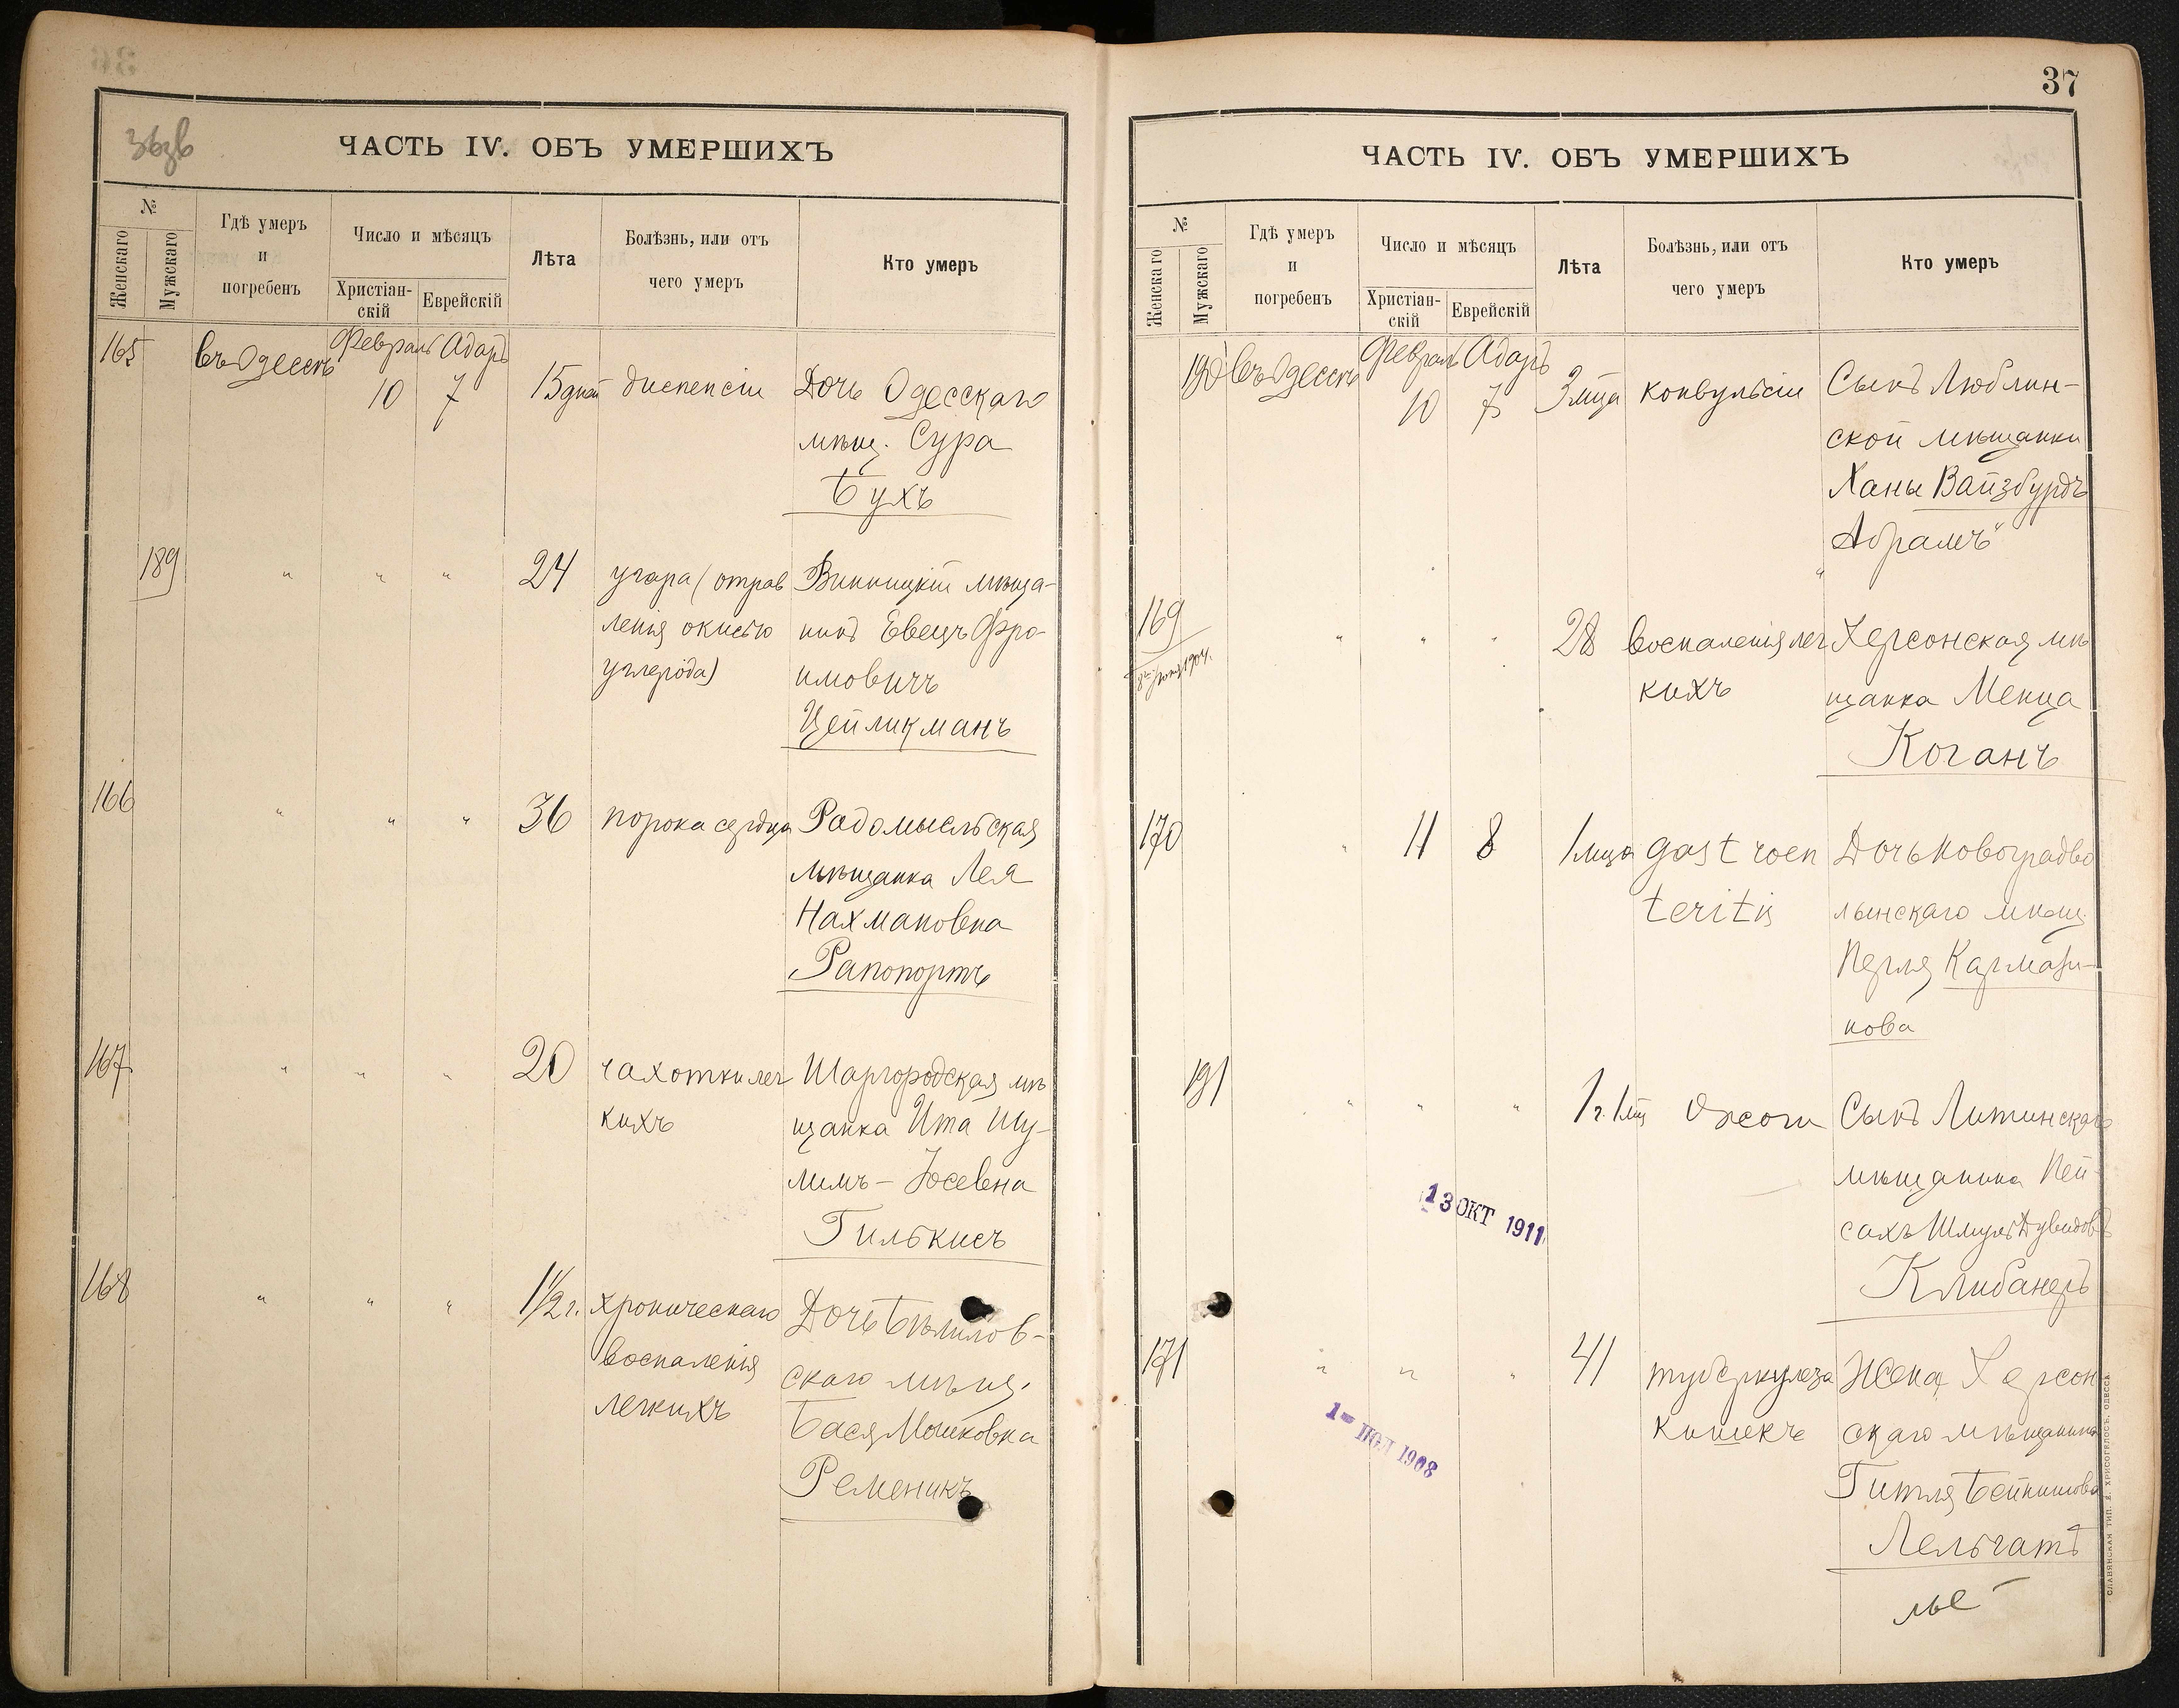 36зв
ЧАСТЬ IV. ОБЪ УМЕРШИХЪ
№
Женскаго
Мужскаго
Гдѣ умеръ
и
погребенъ
Число и мѣсяцъ
Христіан-
скій
Еврейскій
Лѣта
Болѣзнь, или отъ
чего умеръ
Кто умеръ
165 въ Одессѣ Февраль Адаръ
10 7 15 дней диспепсіи Дочь Одесскаго
мѣщ. Сура
Бухъ
189 " " " 24 угара (отрав Винницкій мѣща-
ленія окисью нинъ Евецъ Фро-
углерода) имовичъ
Цейликманъ
166 " " " 36 порока сердца Радомысльская
мѣщанка Лея
Нахмановна
Рапопортъ
167 " " " 20 чахотки лег Шаргородская мѣ
кихъ щанка Ита Шу-
лимъ-Іосевна
Гилькисъ
168 " " " 1 1/2 г. хроническаго Дочь Бѣлилов-
воспаленія скаго мѣщ.
легкихъ Бася Мошковна
Ременикъ
37
ЧАСТЬ IV. ОБЪ УМЕРШИХЪ
№
Женскаго
Мужскаго
Гдѣ умеръ
и
погребенъ
Число и мѣсяцъ
Христіан-
скій
Еврейскій
Лѣта
Болѣзнь, или отъ
чего умеръ
Кто умеръ
190 въ Одессѣ Февраль Адаръ
10 7 3 мца конвульсіи Сынъ Люблин-
ской мѣщанки
Ханы Вайзбурдъ
Абрамъ"
169 " " " 28 воспаленія лег Херсонская мѣ
1904. кихъ щанка Менца
Коганъ
170 " 11 8 1 мца gastroen Дочь Новоградво
teritis лынскаго мѣщ.
Перля Кармази-
нова
191 " " " 1 г. 1 мц Ожоги Сынъ Литинскаго
мѣщанина Пей-
сахъ Шмуль Дувидовъ
Клибанеръ
13 ОКТ 1911
171 " " " 41 туберкулеза Жена Херсон
кишекъ скаго мѣщанина
Гитля Бейнишова
Лельчатъ
1 ПОЛ 1908
СЛАВЯНСКАЯ ТИП. Е. ХРИСОГЕЛОСЪ, ОДЕССА